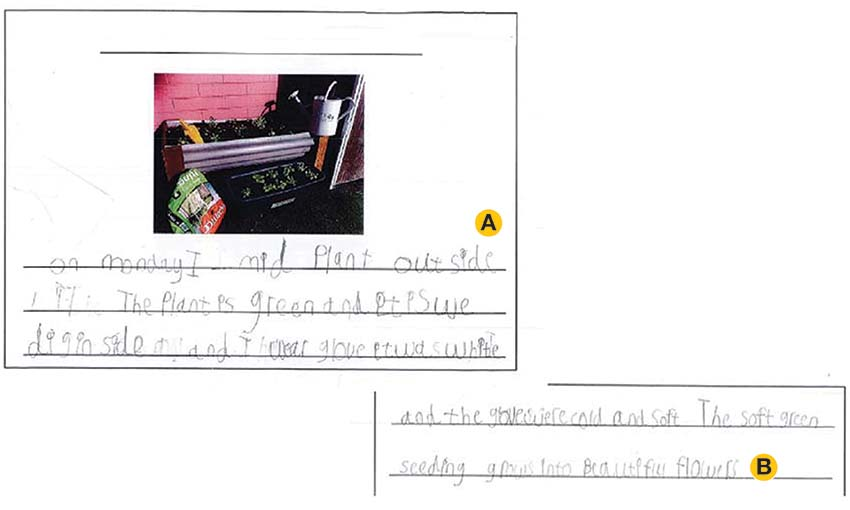 A
on monday I mid Plant outside
The Plant is green and it is we
dig in side and I wear glove it was white
and the gloves were cold and soft The soft green
seeding grows into Beautiful flowers B